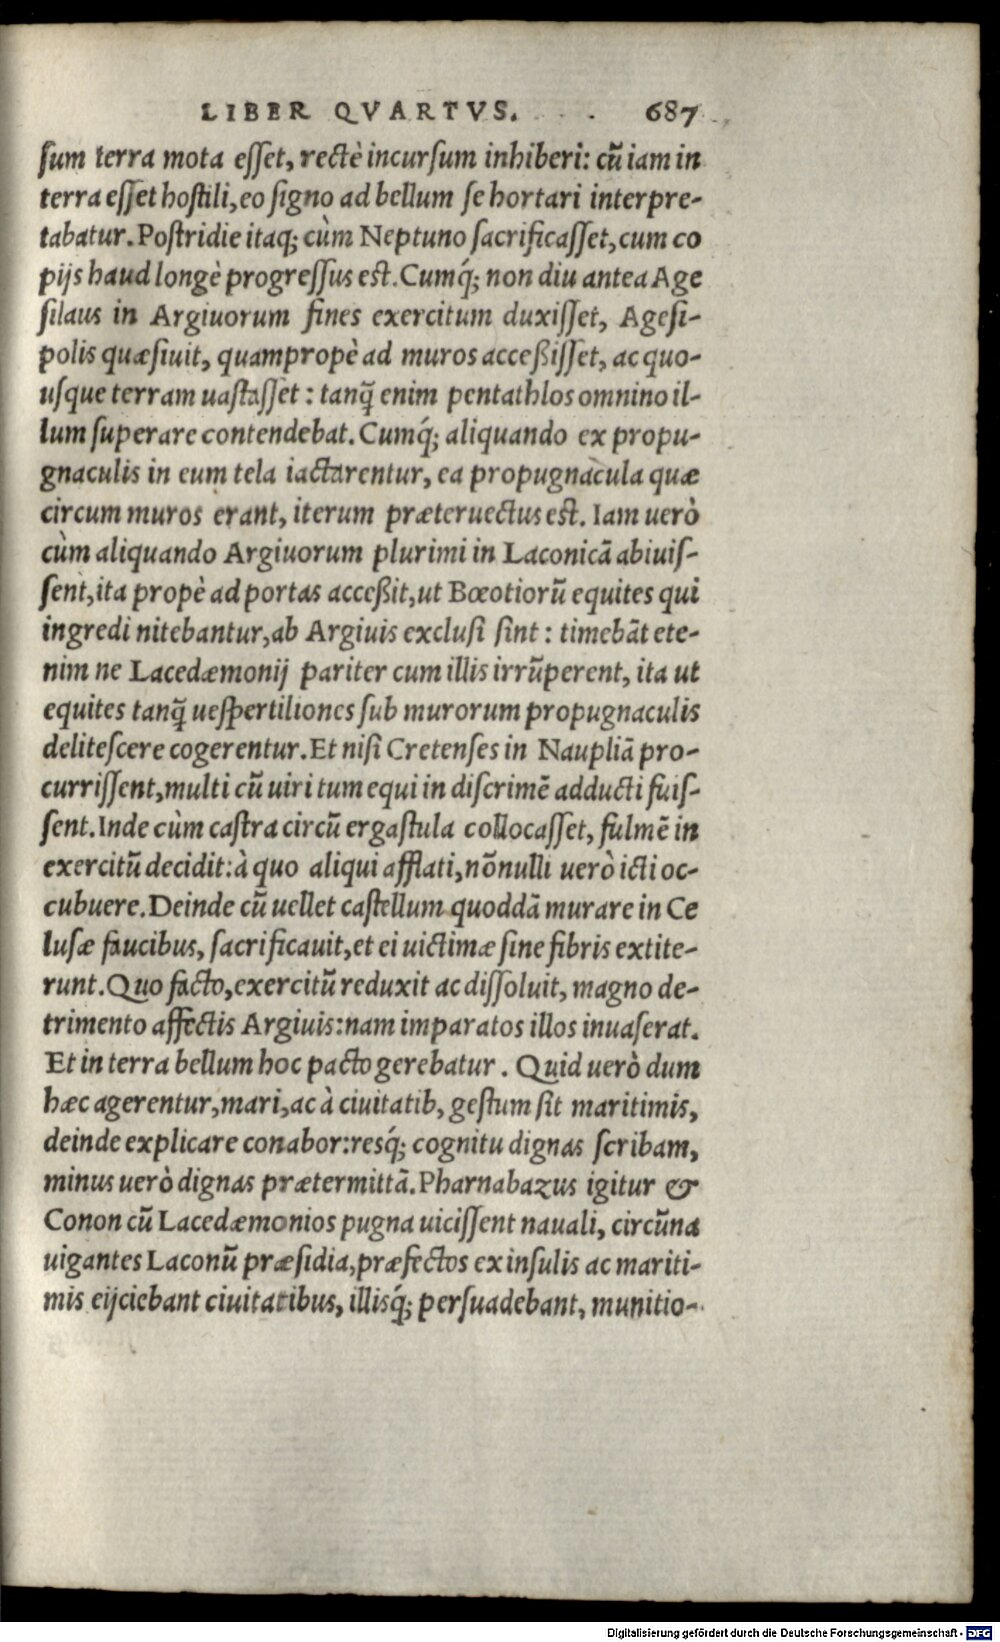 LIBER QVARTVS. 687
sum terra mota esset, rectè incursum inhiberi: cū iam in
terra esset hostili, eo signo ad bellum se hortari interpre-
tabatur. Postridie itaq; cùm Neptuno sacrificasset, cum co
pijs haud longè progressus est. Cumq́; non diu antea Age
silaus in Argiuorum fines exercitum duxisset, Agesi-
polis quæsiuit, quampropè ad muros acceßisset, ac quo-
usque terram uastasset: tanq̃ enim pentathlos omnino il-
lum superare contendebat. Cumq́; aliquando ex propu-
gnaculis in eum tela iactarentur, ea propugnacula quæ
circum muros erant, iterum præteruectus est. Iam uerò
cùm aliquando Argiuorum plurimi in Laconicā abiuis-
sent, ita propè ad portas acceßit, ut Bœotiorū equites qui
ingredi nitebantur, ab Argiuis exclusi sint: timebāt ete-
nim ne Lacedæmonij pariter cum illis irrūperent, ita ut
equites tanq̃ uespertiliones sub murorum propugnaculis
delitescere cogerentur. Et nisi Cretenses in Naupliā pro-
currissent, multi cū uiri tum equi in discrimē adducti fuis-
sent. Inde cùm castra circū ergastula collocasset, fulmē in
exercitū decidit: à quo aliqui afflati, nōnulli uerò icti oc-
cubuere. Deinde cū uellet castellum quoddā murare in Ce
lusæ faucibus, sacrificauit, et ei uictimæ sine fibris extite-
runt. Quo facto, exercitū reduxit ac dissoluit, magno de-
trimento affectis Argiuis: nam imparatos illos inuaserat.
Et in terra bellum hoc pacto gerebatur. Quid uerò dum
hæc agerentur, mari, ac à ciuitatib, gestum sit maritimis,
deinde explicare conabor: resq́; cognitu dignas scribam,
minus uerò dignas prætermittā. Pharnabazus igitur &
Conon cū Lacedæmonios pugna uicissent nauali, circūna
uigantes Laconū præsidia, præfectos ex insulis ac mariti-
mis eijciebant ciuitatibus, illisq́; persuadebant, munitio-
Digitalisierung gefördert durch die Deutsche Forschungsgemeinschaft - DFG